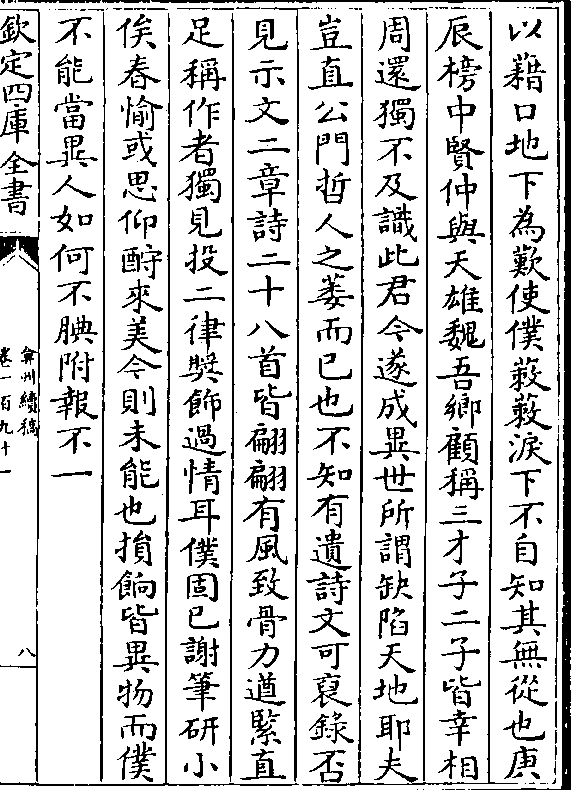 以藉口地下為歎使僕蔌蔌淚下不自知其無從也庚
辰榜中賢仲與天雄魏吾鄉顧稱三才子二子皆幸相
周還獨不及識此君今遂成異世所謂缺陷天地耶夫
豈直公門哲人之萎而已也不知有遺詩文可裒錄否
見示文二章詩二十八首皆翩翩有風致骨力遒緊直
足稱作者獨見投二律奬飾過情耳僕固已謝筆研小
俟春愉或思仰酧來美今則未能也損餉皆異物而僕
不能當異人如何不腆附報不一
欽定四庫全書
弇州續稿
卷一百九十一
八